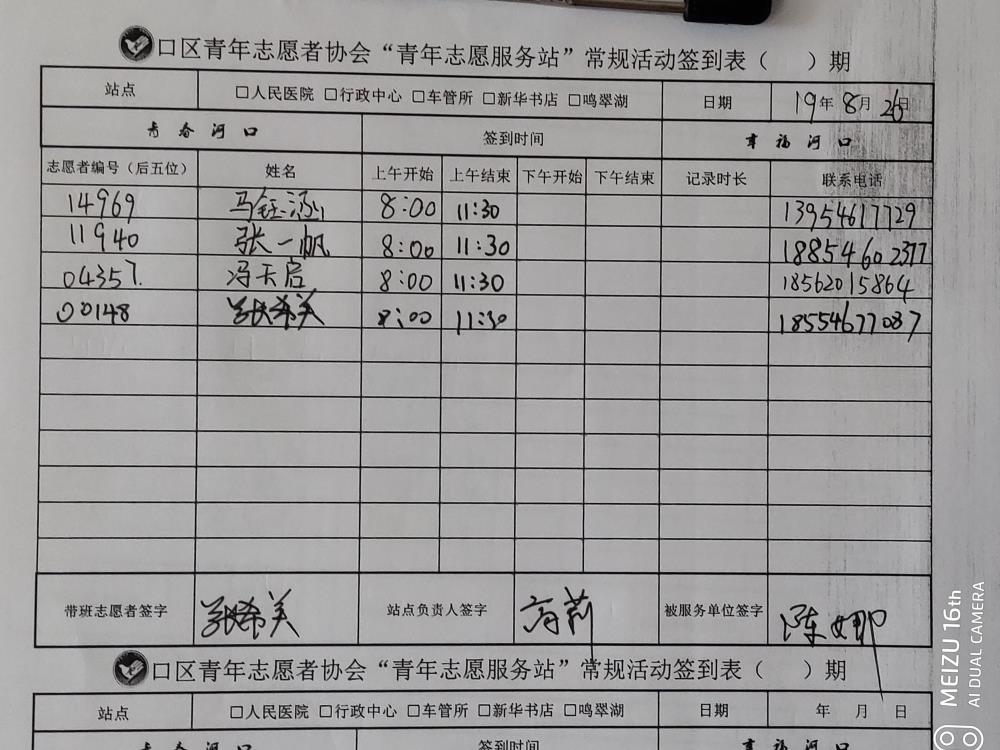 口区青年志愿者协会“青年志愿服务站”常规活动签到表（ ）期
站点 □人民医院 □行政中心 □车管所 □新华书店 □鸣翠湖 日期 19年 8月 26日
青春河口 签到时间 幸福河口
志愿者编号（后五位） 姓名 上午开始 上午结束 下午开始 下午结束 记录时长 联系电话
14969 马钰涵 8:00 11:30 13954617729
11940 张一帆 8:00 11:30 18854602377
04357. 冯天启 8:00 11:30 18562015864
00148 张希美 8:00 11:30 18554677087
带班志愿者签字 张希美 站点负责人签字 高莉 被服务单位签字 陈娜
口区青年志愿者协会“青年志愿服务站”常规活动签到表（ ）期
站点 □人民医院 □行政中心 □车管所 □新华书店 □鸣翠湖 日期 年 月 日
青春河口 签到时间 幸福河口
MEIZU 16th
AI DUAL CAMERA